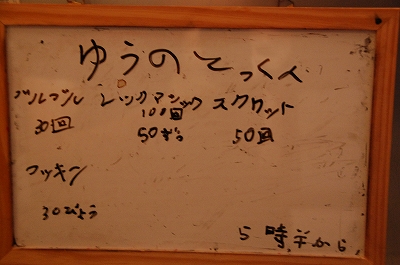 ゆうの とっくん
ブルブル レッグマジック スクワット
30回 100回
50びょう 50回
フッキン
30びょう
5時半から